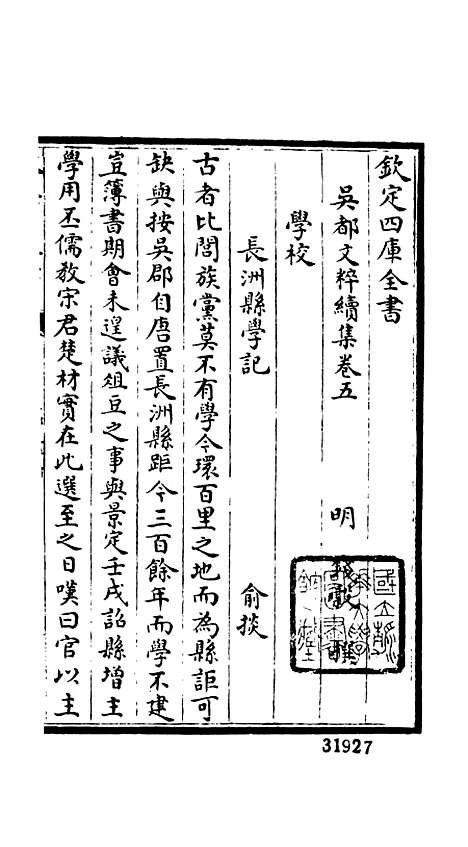 欽定四庫全書
吳都文粹續集卷五
明
撰
學校
長洲縣學記
俞掞
古者比閭族黨莫不有學今環百里之地而為縣詎可
缺與按吳郡自唐置長洲縣距今三百餘年而學不建
豈簿書期會未遑議俎豆之事與景定壬戌詔縣增主
學用丕儒教宋君楚材實在此選至之日嘆曰官以主
31927